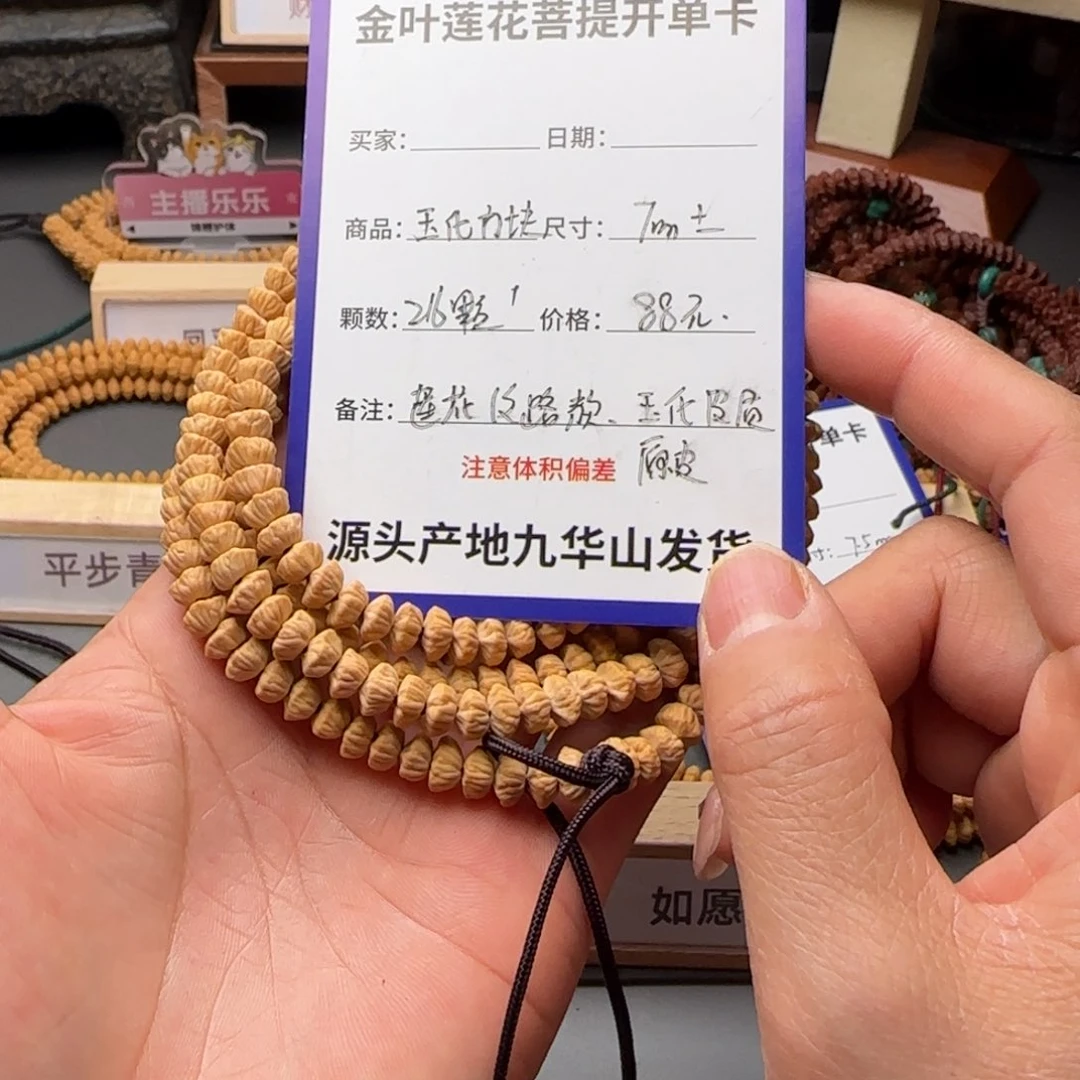 金叶莲花菩提开单卡
买家： 日期：
商品：玉化方块 尺寸：7mm±
颗数：216颗 价格：88元.
备注：莲花纹路款、玉化皮质
原皮
注意体积偏差
源头产地九华山发货
主播乐乐
平步青
如愿
单卡
寸：7.5m